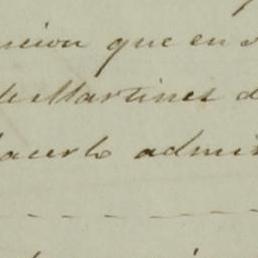 ncion que en
de Martinez d
hacerlo admi